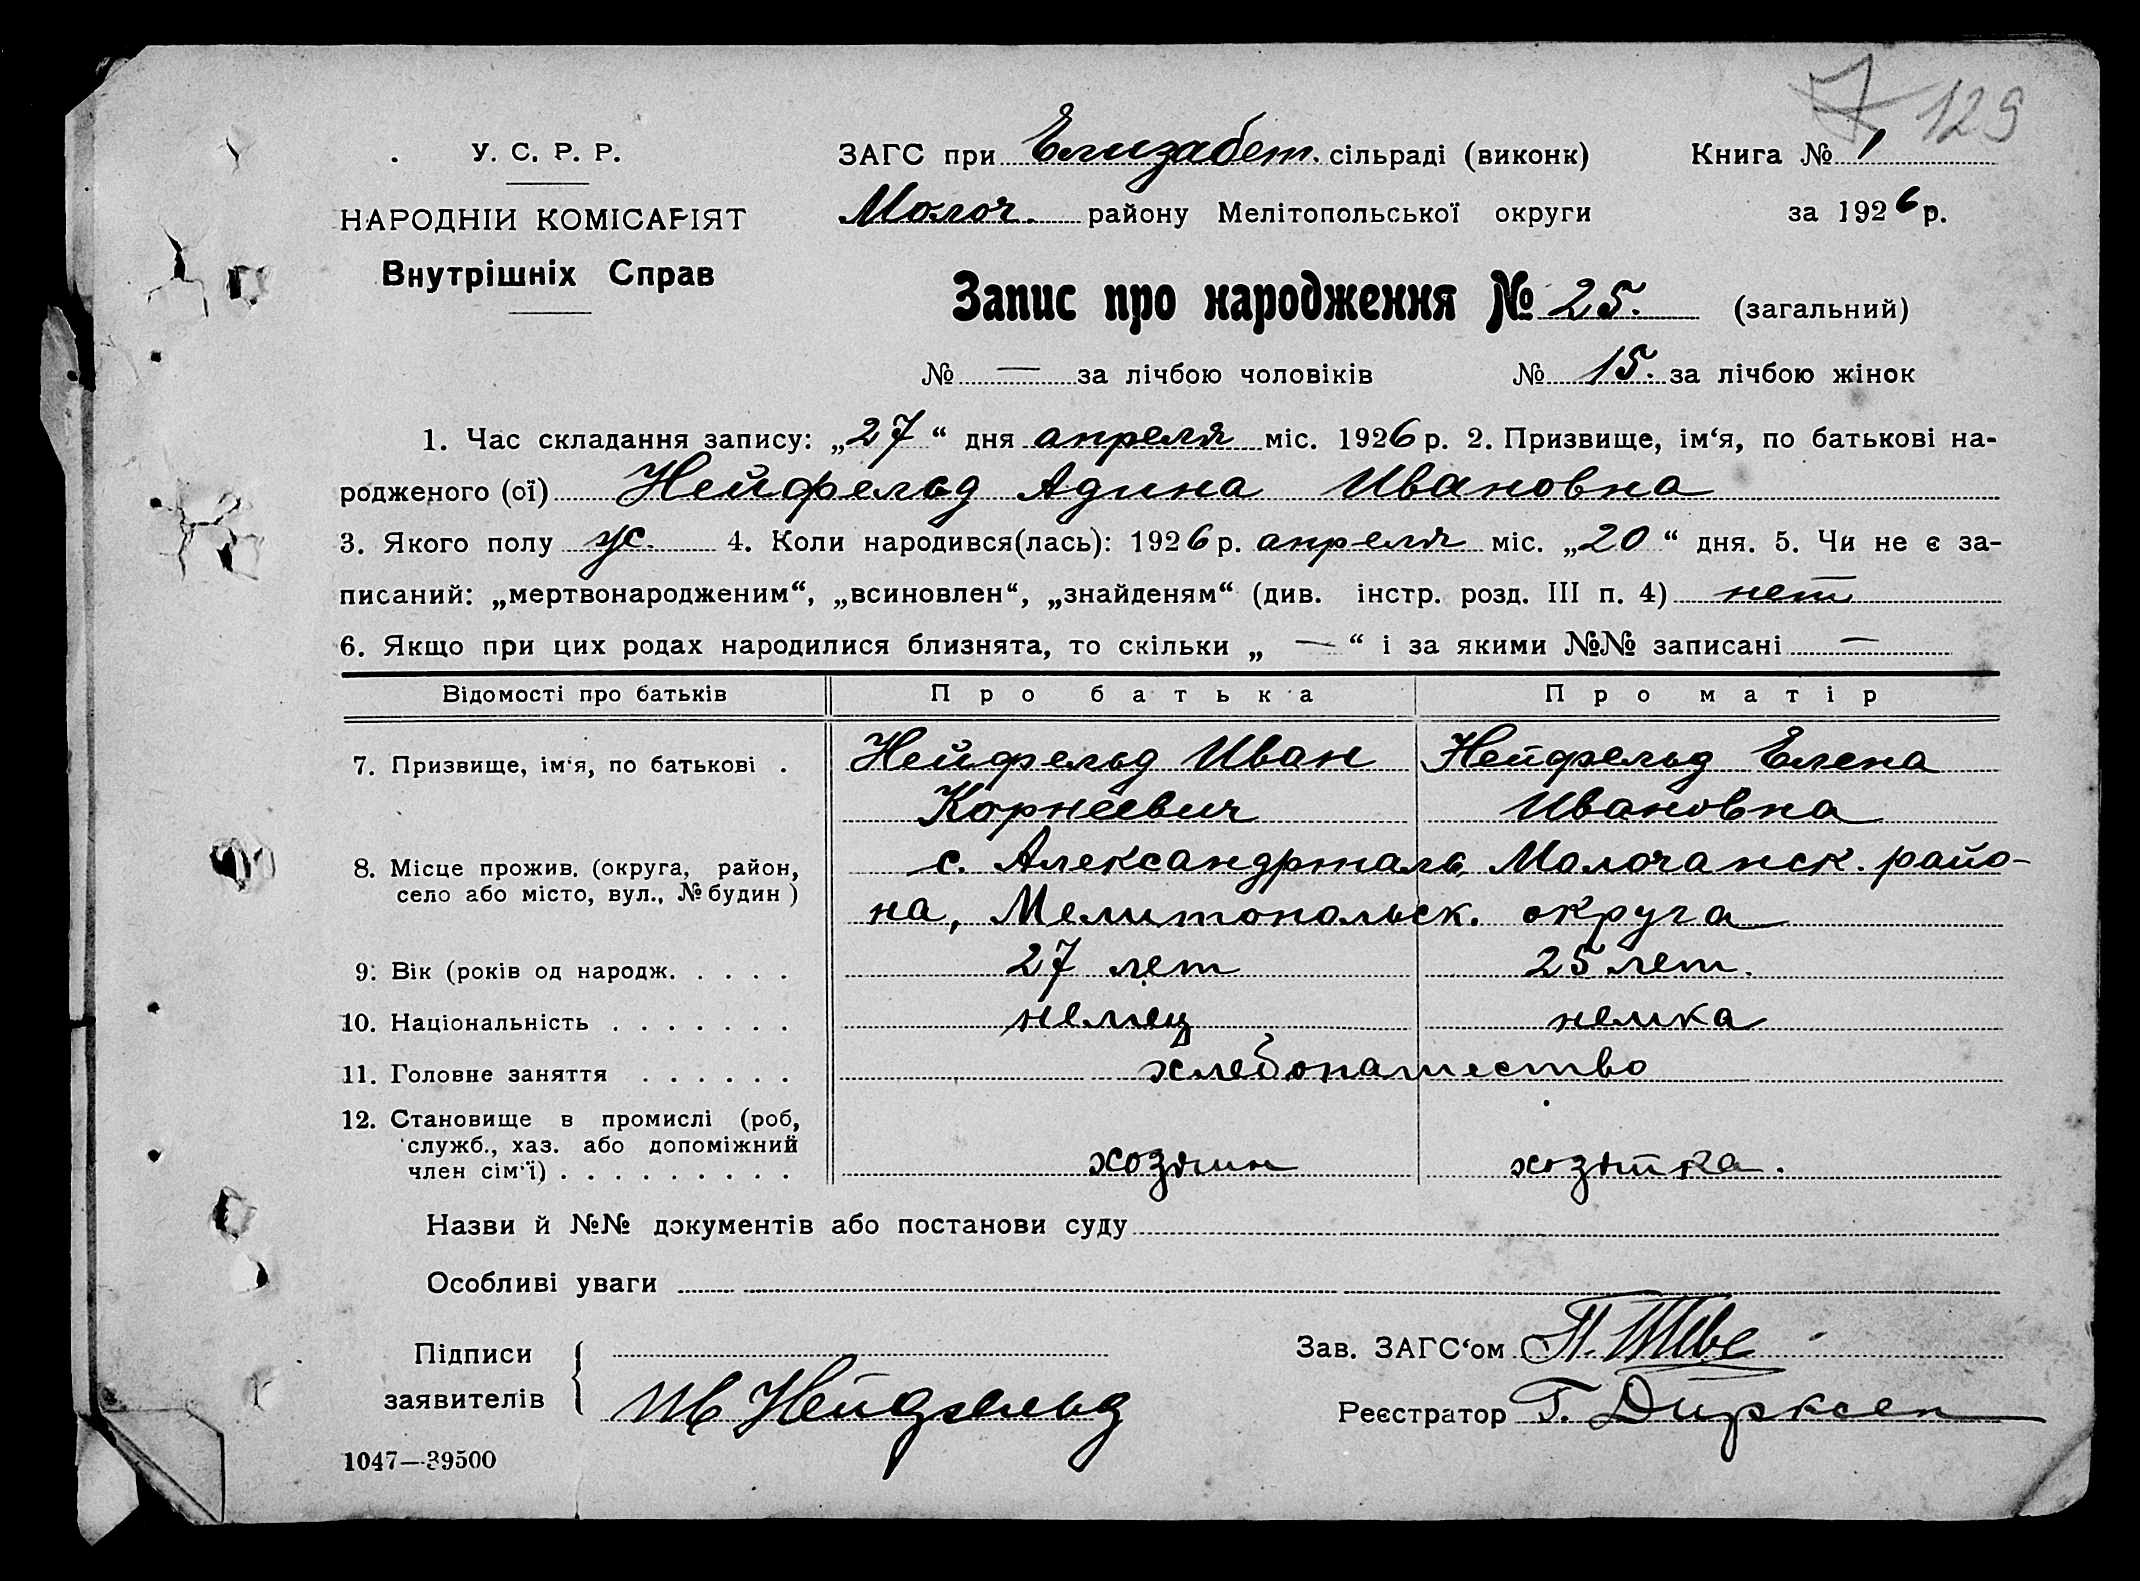 7 129
У. С. Р. Р.
НАРОДНІЙ КОМІСАРІЯТ
Внутрішніх Справ
ЗАГС при Елизабет. сільраді (виконк) Книга № 1
Молоч. району Мелітопольської округи за 1926 р.
Запис про народження № 25. (загальний)
№ — за лічбою чоловіків № 15. за лічбою жінок
1. Час складання запису: „27“ дня апреля міс. 1926 р. 2. Призвище, ім‘я, по батькові на-
родженого (ої) Нейфельд Адина Ивановна
3. Якого полу ж. 4. Коли народився(лась): 1926 р. апреля міс. „20“ дня. 5. Чи не є за-
писаний: „мертвонародженим“, „всиновлен“, „знайденям“ (див. інстр. розд. III п. 4) нет
6. Якщо при цих родах народилися близнята, то скільки „ — “ і за якими №№ записані —
Відомості про батьків Про батька Про матір
7. Призвище, ім‘я, по батькові . Нейфельд Иван Нейфельд Елена
Корнеевич Ивановна
8. Місце прожив. (округа, район, с. Александрталь, Молочанск. райо-
село або місто, вул., № будин ) на, Мелитопольск. округа
9. Вік (років од народж. . . . . 27 лет 25 лет.
10. Національність . . . . . . . немец немка
11. Головне заняття . . . . . . хлебопашество
12. Становище в промислі (роб,
служб., хаз. або допоміжний
член сім‘ї) . . . . . . . . . хозяин хозяйка.
Назви й №№ документів або постанови суду
Особливі уваги
Підписи
заявителів Ив Нейфельд
Зав. ЗАГС‘ом П.
Реєстратор Г. Дирксен
1047—39500